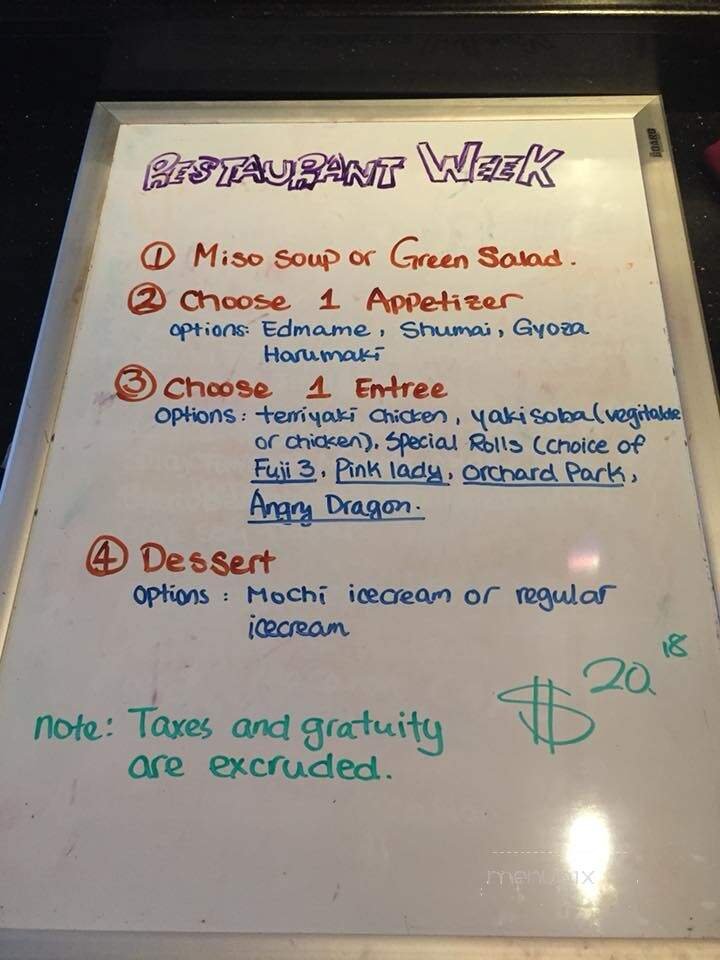 BOARD
RESTAURANT WEEK
① Miso soup or Green Salad.
② Choose 1 Appetizer
options: Edmame, Shumai, Gyoza
Harumaki
③ Choose 1 Entree
options: terriyaki chicken, yakisoba (vegitable
or chicken), Special Rolls (choice of
Fuji 3, Pink lady, Orchard Park,
Angry Dragon.
④ Dessert
options: Mochi icecream or regular
icecream
$20.18
note: Taxes and gratuity
are excruded.
menupix